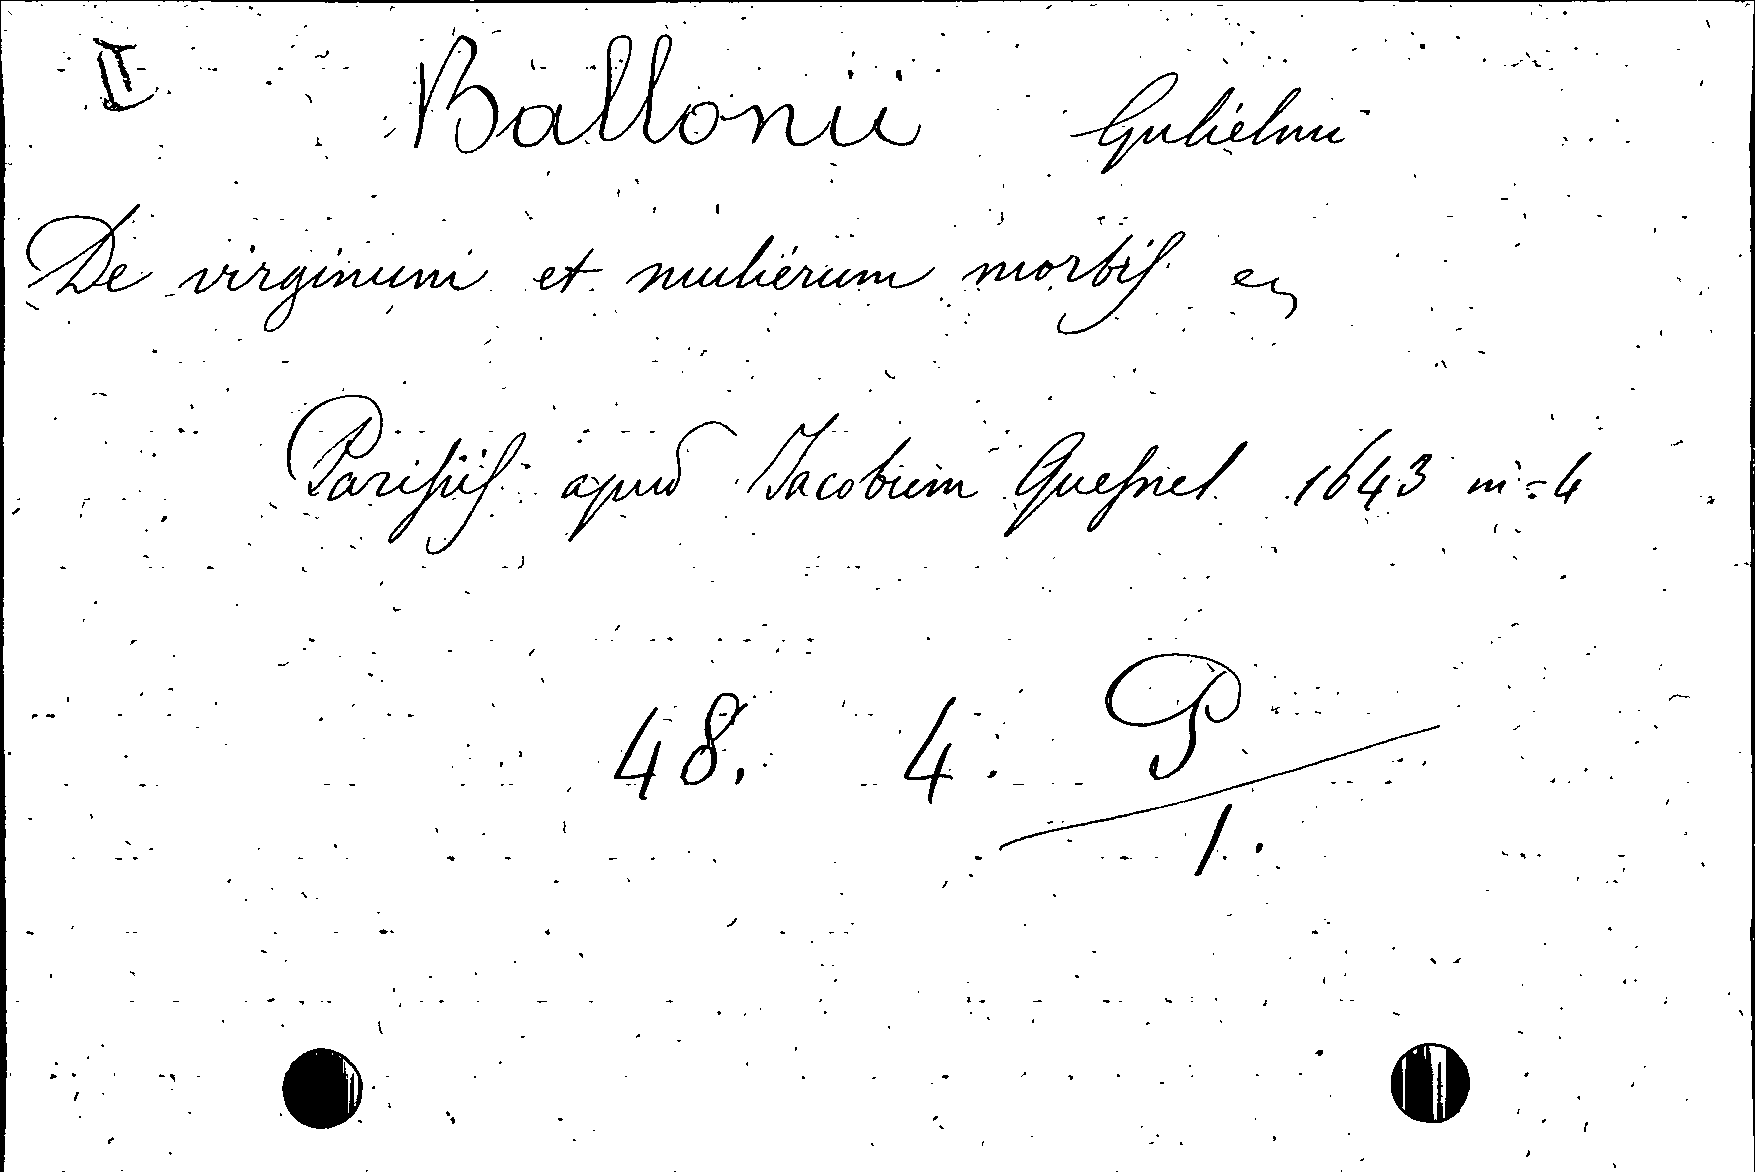 II Ballonii Gulielmi
De virginum et mulierum morbis
Parisiis apud Jacobum Quesnel 1643 in=4
48. 4. P
1.